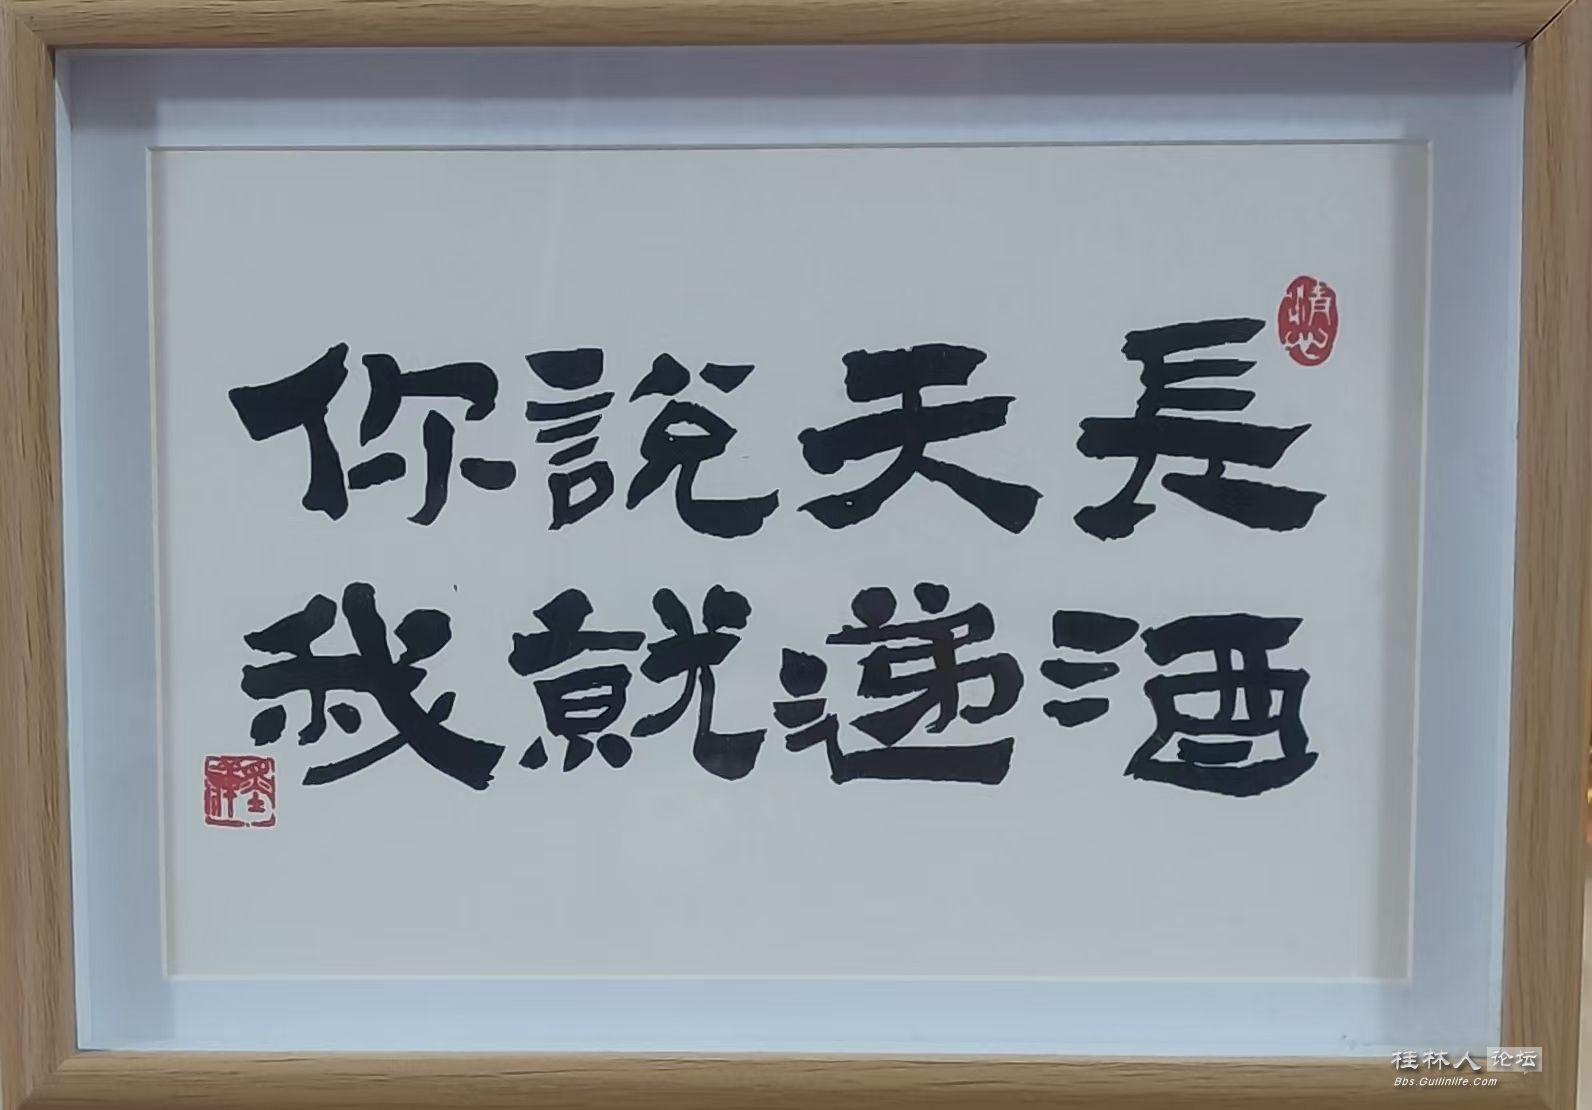 你説天長
我就递酒
桂林人论坛
Bbs.Guilinlife.Com